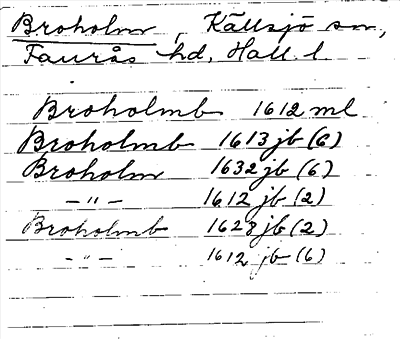 Broholm, Källsjö sn,
Faurås hd, Hall. l.
Broholmb 1612 ml
Broholmb 1613 jb (6)
Broholm 1632 jb (6)
-"- 1612 jb (2)
Broholmb 1628 jb (2)
-"- 1612 jb (6)